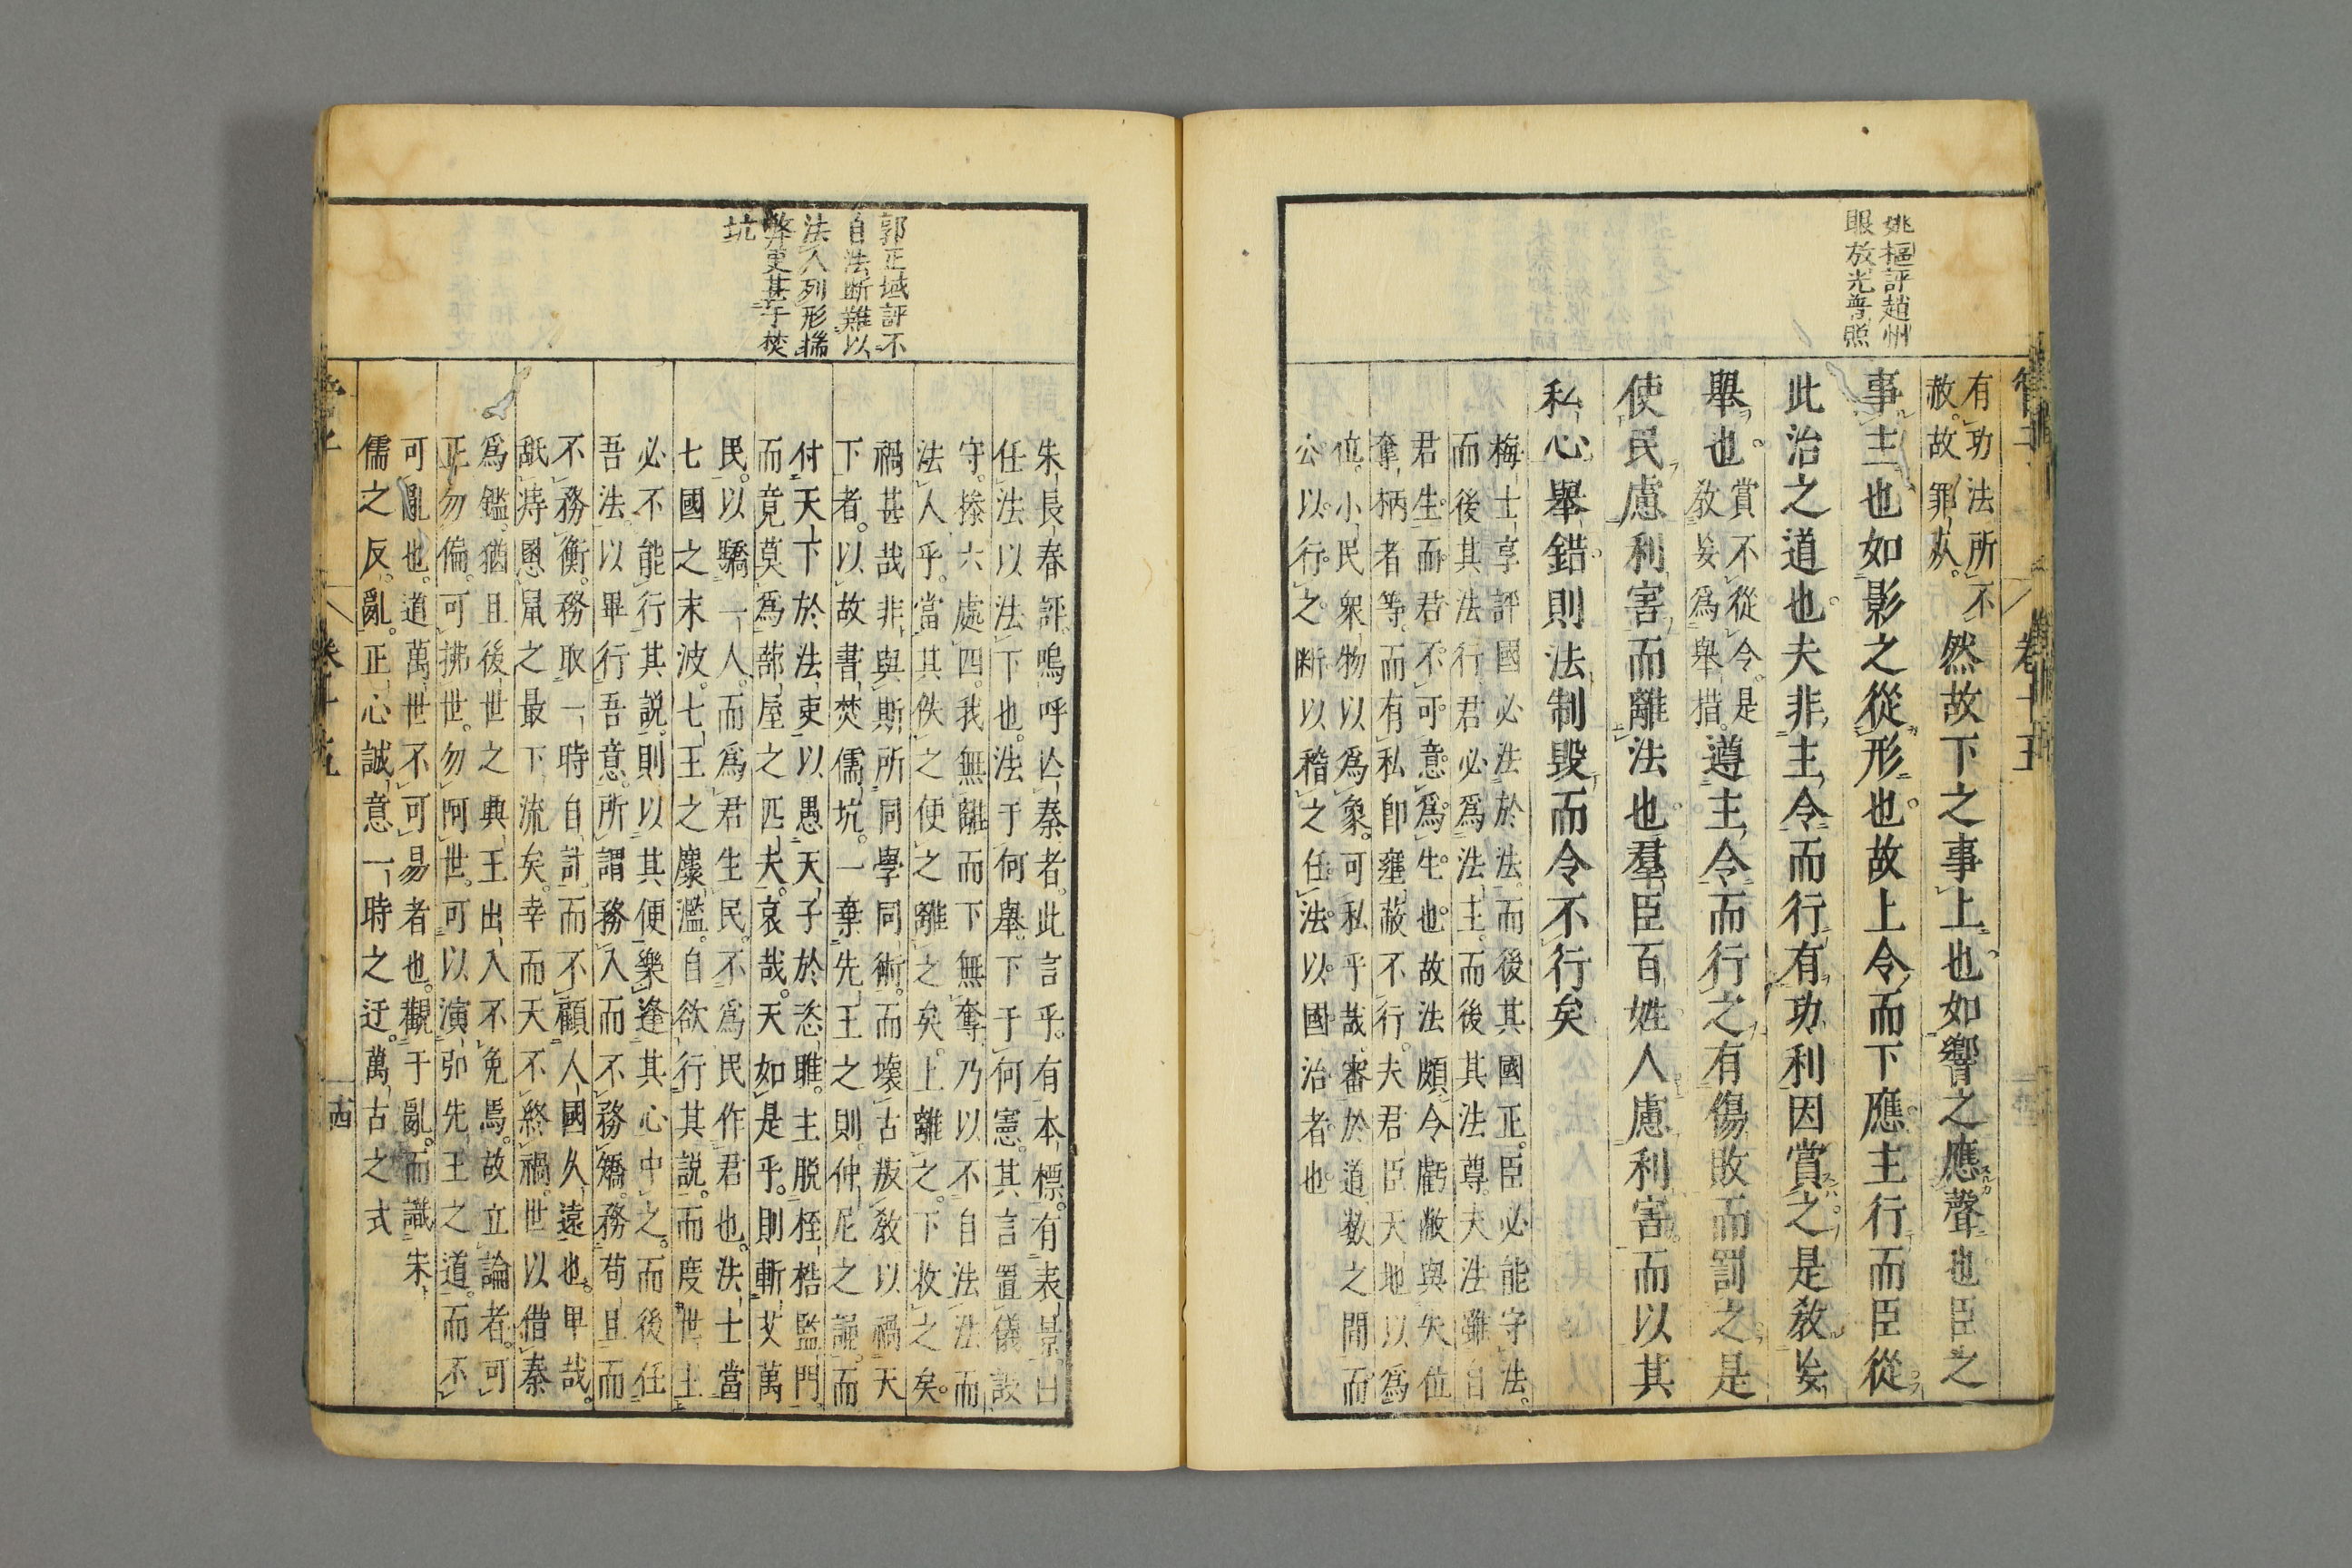 姚樞評趙州
眼放光普照
有功法所不
赦故罪
然故下之事上也如響之應聲也臣之
事主也如影之從形也故上令而下應主行而臣從
此治之道也夫非主令而行有功利因賞之是教妄
舉也
賞不從令是
教妄爲舉措
遵主令而行之有傷敗而罰之是
使民慮利害而離法也羣臣百姓人慮利害而以其
私心舉錯則法制毀而令不行矣
梅士享評國必法於法而後其國正臣必能守法
而後其法行君必爲法主而後其法尊夫法雖自
君生而君不可意爲生也故法頗令虧敝與失位
奪柄者等而有私卽壅蔽不行夫君臣天地以爲
位小民衆物以爲象可私乎哉審於道数之間而
公以行之断以稽之任法以國治者也
郭正域評不
自法断難以
法人列形
弊更甚于焚
坑
朱長春評嗚呼亾秦者此言乎有本標有表景曰
任法以法下也法于何舉下于何憲其言置儀設
守㨿六處四我無離而下無奪乃以不自法法而
法人乎當其佚之便之離之矣上離之下收之矣
禍甚哉非與斯所同學同術而壞古叛教以禍天
下者以故書焚儒坑一棄先王之則仲尼之誦而
付天下於法吏以愚天子於恣睢主脱桎梏監門
而竟莫爲蔀屋之匹夫哀哉天如是乎則斬艾萬
民以驕一人而爲君生民不爲民作君也法士當
七國之末波七王之麋濫自欲行其説而度世主
必不能行其説則以其便樂逢其心中之而後任
吾法以畢行吾意所謂務入而不務矯務苟且而
不務衡務取一時自計而不顧人國久遠也甲哉
舐痔慁鼠之最下流矣幸而天不終禍世以借秦
爲鑑猶且後世之典王出入不免焉故立論者可
正勿偏可拂世勿阿世可以演卲先王之道而不
可亂也道萬世不可易者也觀于亂而識朱
儒之反亂正心誠意一時之迂萬古之式